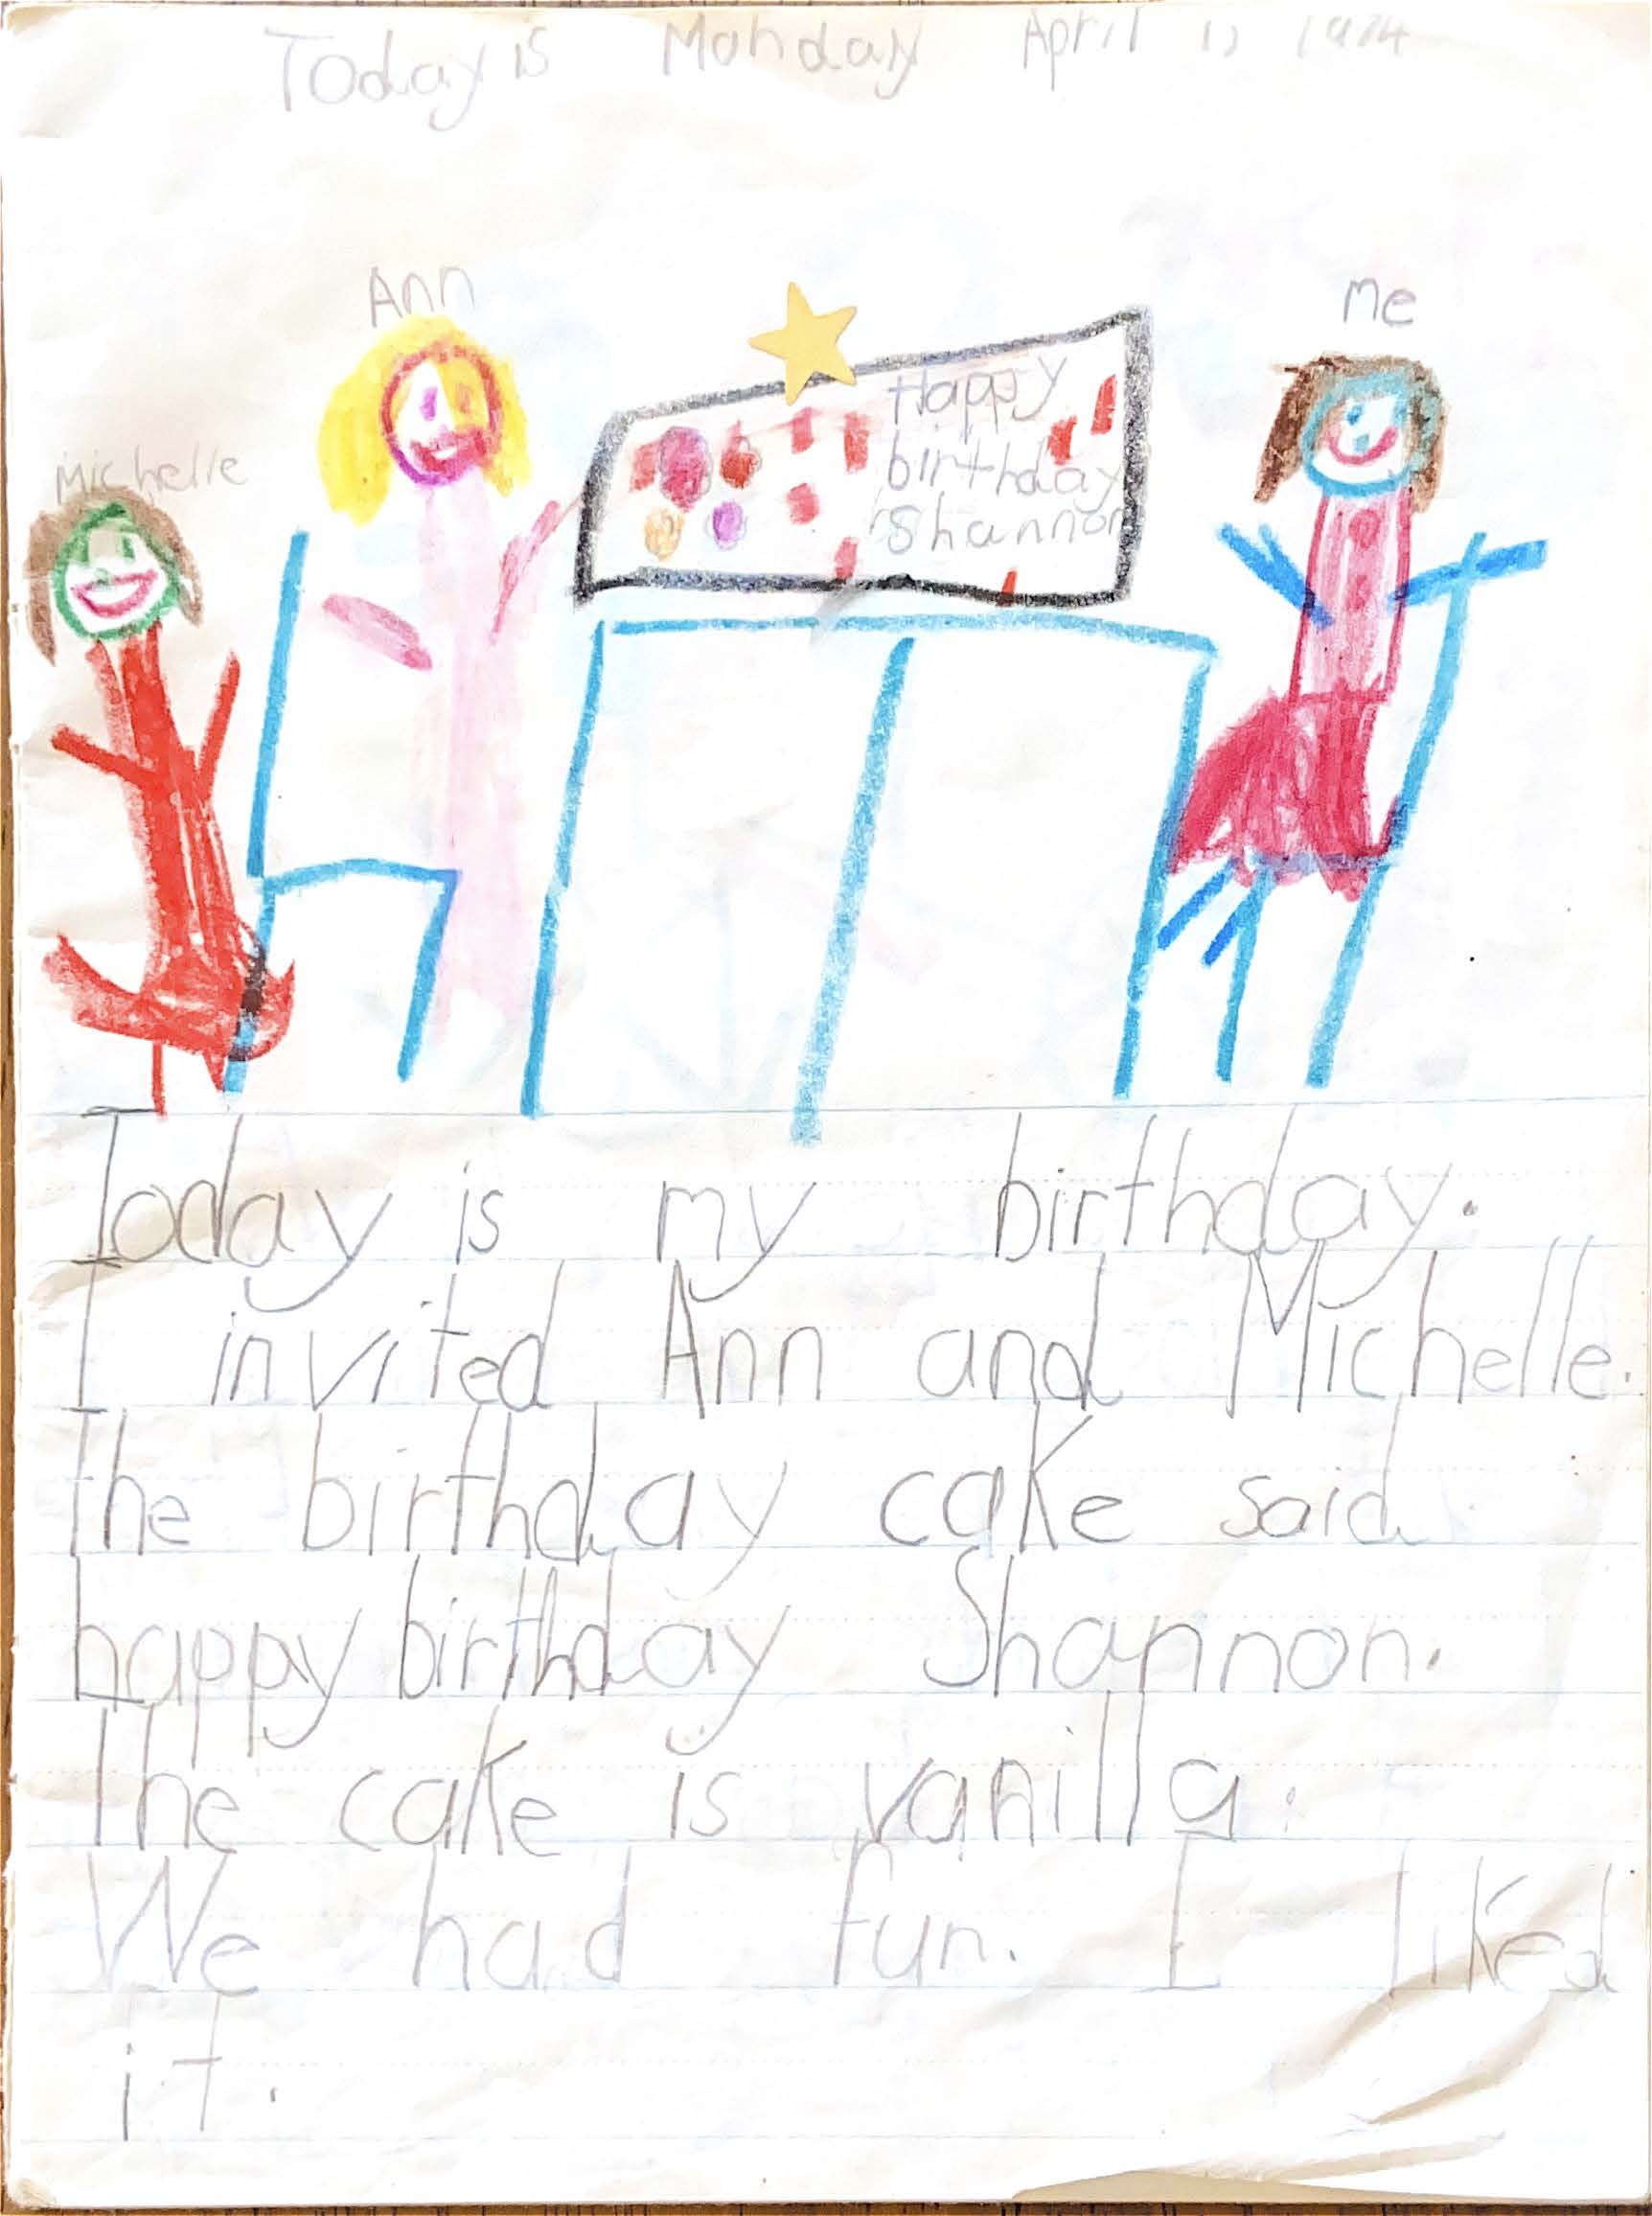 Today is Monday April 1, 1974
Ann
Me
Michelle
Happy
birthday
Shannon
Today is my birthday.
I invited Ann and Michelle.
The birthday cake said
happy birthday Shannon.
The cake is vanilla.
We had fun. I liked
it.